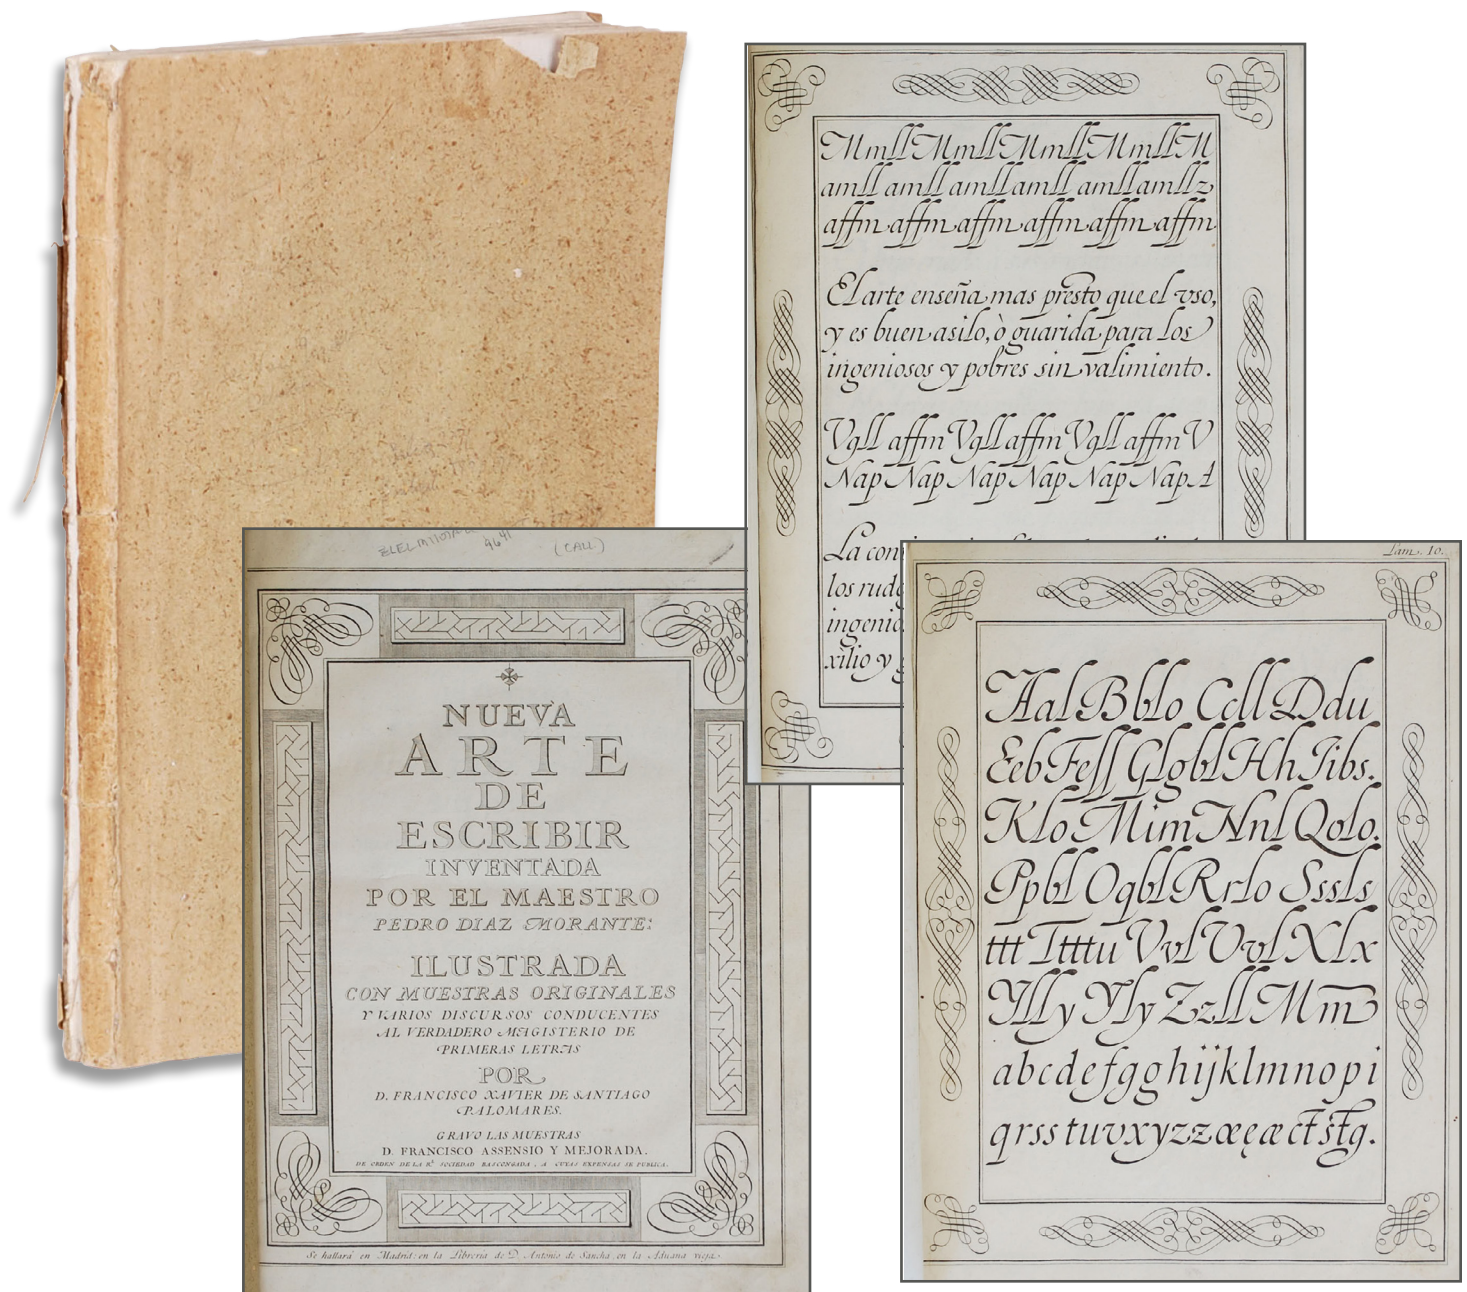 (CALL)
NUEVA
ARTE
DE
ESCRIBIR
INVENTADA
POR EL MAESTRO
PEDRO DIAZ MORANTE:
ILUSTRADA
CON MUESTRAS ORIGINALES
Y VARIOS DISCURSOS CONDUCENTES
AL VERDADERO MAGISTERIO DE
PRIMERAS LETRAS
POR
D. FRANCISCO XAVIER DE SANTIAGO
PALOMARES.
GRAVO LAS MUESTRAS
D. FRANCISCO ASSENSIO Y MEJORADA.
DE ORDEN DE LA Rl. SOCIEDAD BASCONGADA, A CUYAS EXPENSAS SE PUBLICA.
Se hallará en Madrid: en la Librería de D. Antonio de Sancha en la Aduana vieja.
Mmll Mmll Mmll Mmll M
amll amll amll amll amll amll z
affm affm affm affm affm affm
El arte enseña mas presto que el vso,
y es buen asilo, ò guarida para los
ingeniosos y pobres sin valimiento.
Vgll affm Vgll affm Vgll affm V
Nap Nap Nap Nap Nap Nap A
La con
los rud
ingenio
xilio y
Lam. 10.
Aal Bblo Ccll Ddu
Eeb Feff Glgbl Hh Iibs.
Klo Mim Nnl Qolo.
Ppbl Oqbl Rrlo Sssls
ttt Ttttu Vvl Vvl Xlx
Ylly Yly Zzll M m
abcdefgghijklmnopi
qrsstuvxyzzœęæctstg.